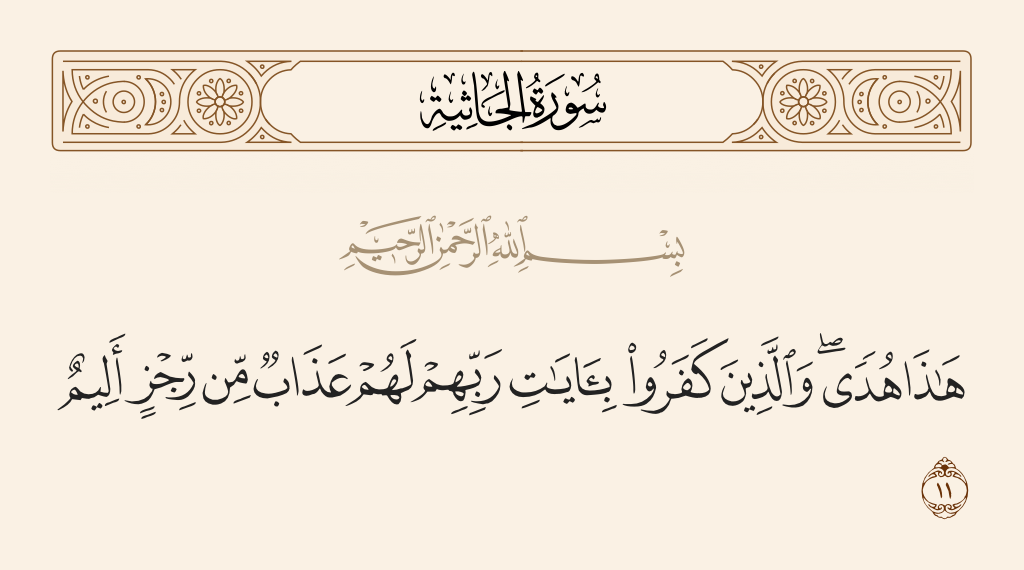 سُورَةُ الجَاثِيَةِ
بِسْمِ ٱللَّهِ ٱلرَّحْمَٰنِ ٱلرَّحِيمِ
هَٰذَا هُدًى ۖ وَٱلَّذِينَ كَفَرُوا۟ بِـَٔايَٰتِ رَبِّهِمْ لَهُمْ عَذَابٌ مِّن رِّجْزٍ أَلِيمٌ
١١